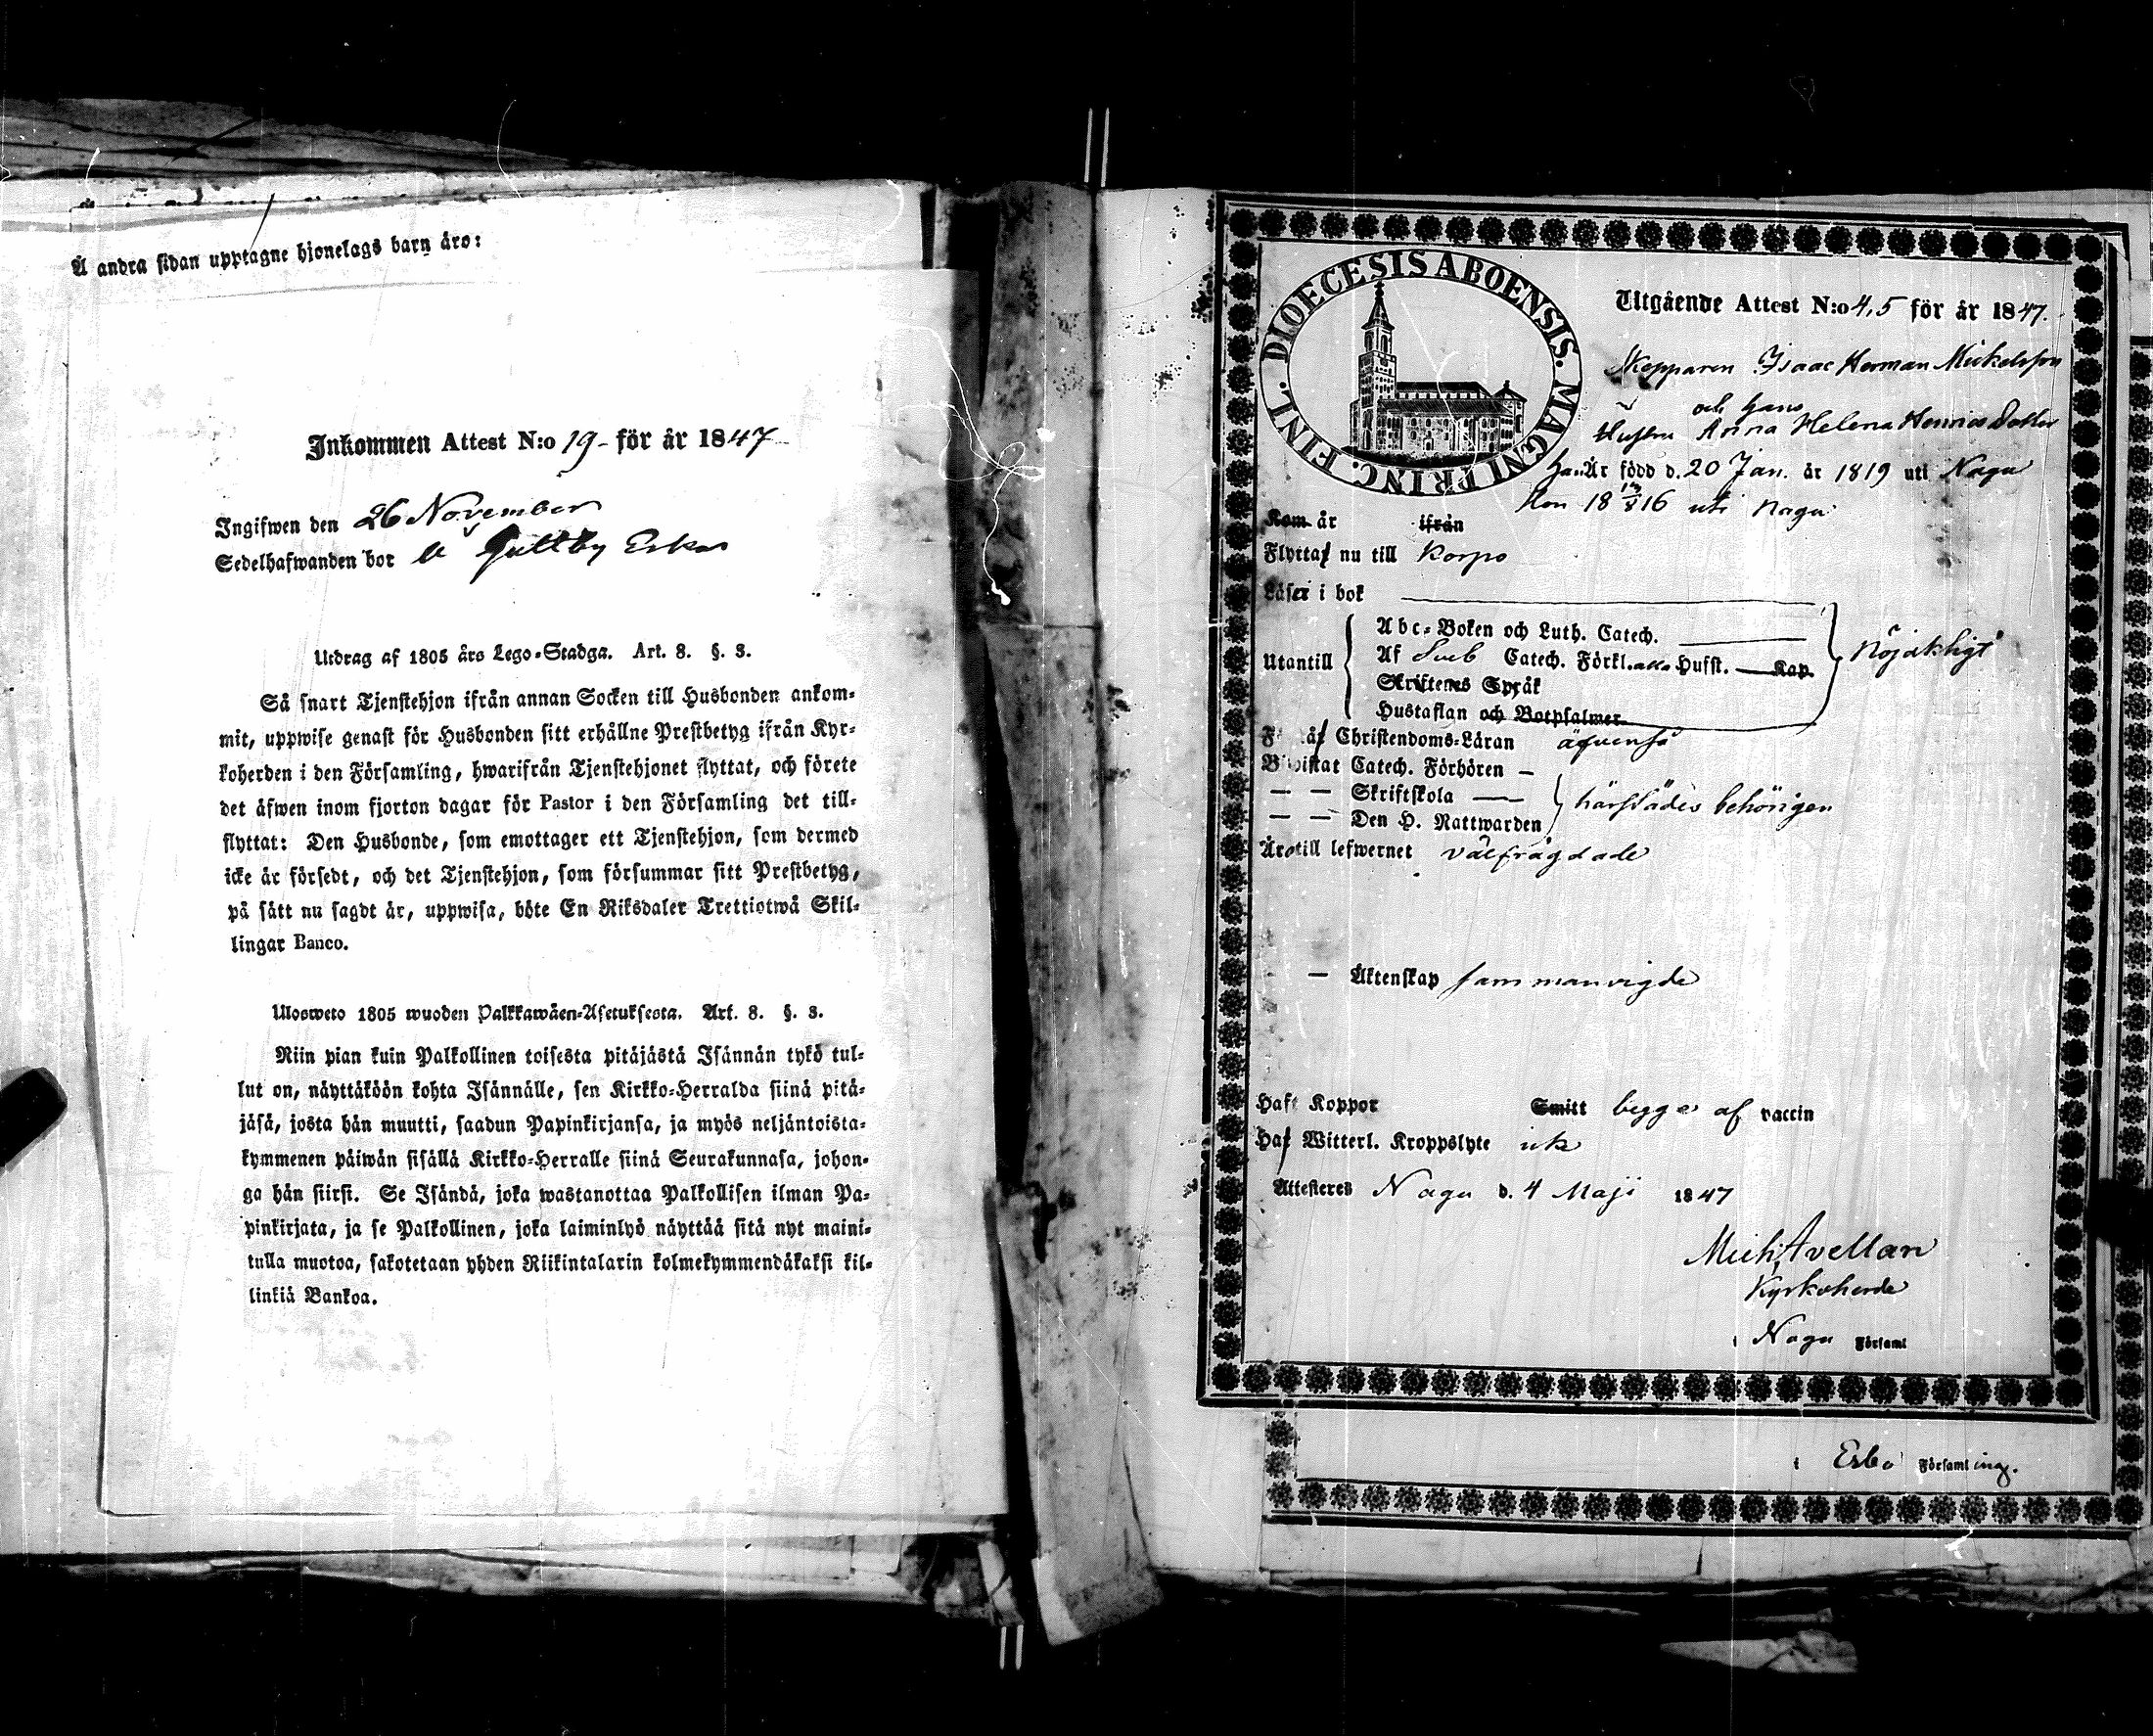 Å andra sidan upptagne hjonelags barn äro:
Inkommen Attest N:o 19 för år 1847
Ingifwen den 26 November
Sedelhafwanden bor å Gyttby
Utdrag af 1805 års Lego-Stadga. Art. 8. §. 3.
Så snart Tjenstehjon ifrån annan Socken till Husbonden ankom-
mit, uppwise genast för Husbonden sitt erhållne Prestbetyg ifrån Kyr-
koherden i den Församling, hwarifrån Tjenstehjonet flyttat, och förete
det äfwen inom fjorton dagar för Pastor i den Församling det till-
flyttat: Den Husbonde, som emottager ett Tjenstehjon, som dermed
icke är försedt, och det Tjenstehjon, som försummar sitt Prestbetyg,
på sätt nu sagdt är, uppwisa, böte En Riksdaler Trettiotwå Skil-
lingar Banco.
Ulosweto 1805 wuoden Palkkawäen-Asetuksesta. Art. 8. §. 3.
Niin pian kuin Palkollinen toisesta pitäjästä Isännän tykö tul-
lut on, näyttäköön kohta Isännälle, sen Kirkko-Herralda siinä pitä-
jäsä, josta hän muutti, saadun Papinkirjansa, ja myös neljäntoista-
kymmenen päiwän sisällä Kirkko-Herralle siinä Seurakunnasa, johon-
ga hän siirsi. Se Isändä, joka wastanottaa Palkollisen ilman Pa-
pinkirjata, ja se Palkollinen, joka laiminlyö näyttää sitä nyt maini-
tulla muotoa, sakotetaan yhden Riikintalarin kolmekymmendäkaksi kil-
linkiä Bankoa.
DIOECESIS ABOENSIS. MAGNI PRINC. FINL.
Utgående Attest N:o 45 för år 1847.
Skepparen Isaac Herman Mickelsson
och hans
Hustru Anna Helena Henrics Dotter
han Är född d. 20 Jan. år 1819 uti Nagu
hon 18 16 uti Nagu
Kom år ifrån
Flyttar nu till Korpo
Läser i bok
Utantill
Abc-Boken och Luth. Catech.
Af Sveb Catech. Förkl. Hufst. Kap.
Skriftenes Språk
Hustaflan och Botpsalmer
nöjaktigt
Christendoms-Läran äfvenså
Bewistat Catech. Förhören
Skriftskola
Den H. Nattwarden
härstädes behörigen
Äro till lefwernet välfrägdade
Äktenskap sammanvigde
Haft Koppor Smitt begge af vaccin
Haf Witterl. Kroppslyte icke
Attesteres Nagu d. 4 Maji 1847
Mich. Avellan
Kyrkoherde
i Nagu Församl
i Esbo Församling.